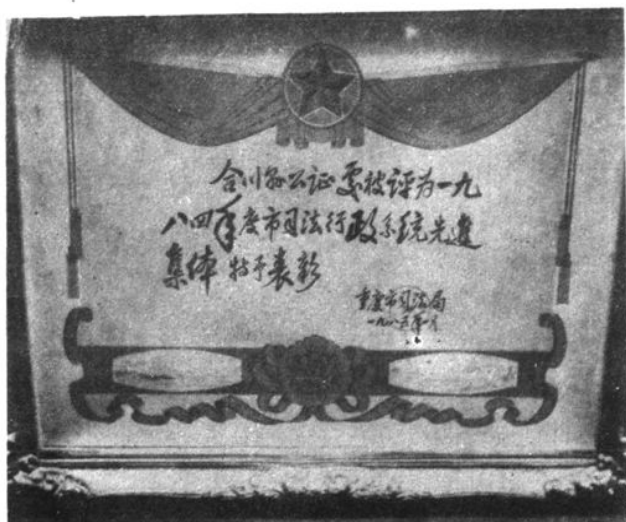 合川县公证处被评为一九
八四年度市司法行政系统先進
集体 特予表彰
重庆市司法局
一九八五年一月